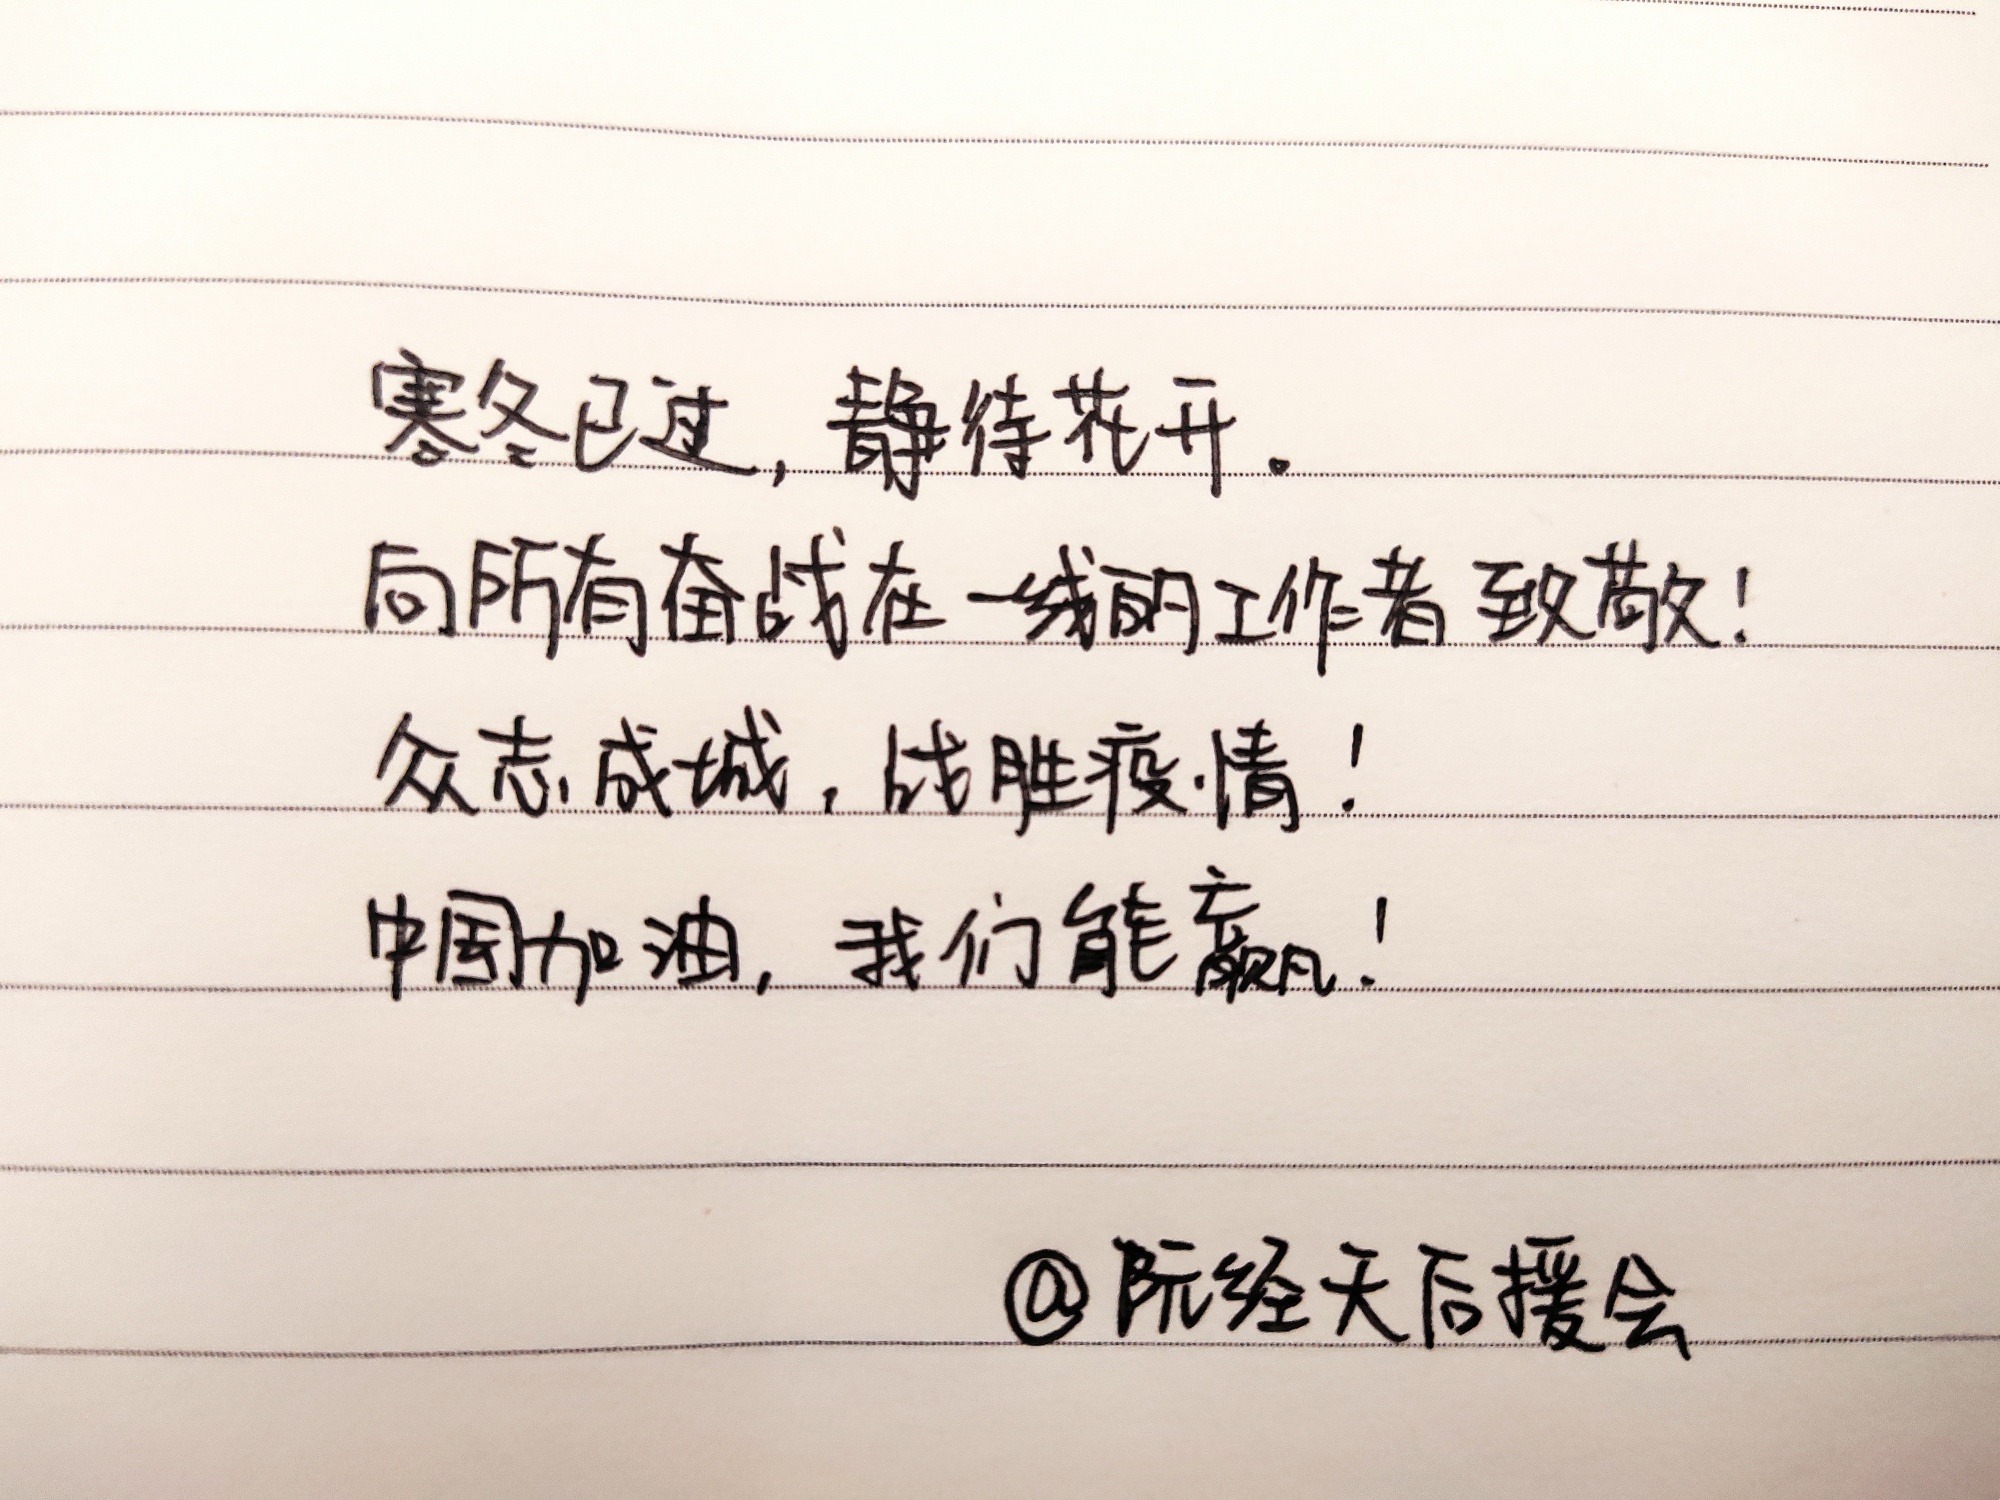 寒冬已过，静待花开。
向所有奋战在一线的工作者致敬！
众志成城，战胜疫情！
中国加油，我们能赢！
@阮经天后援会